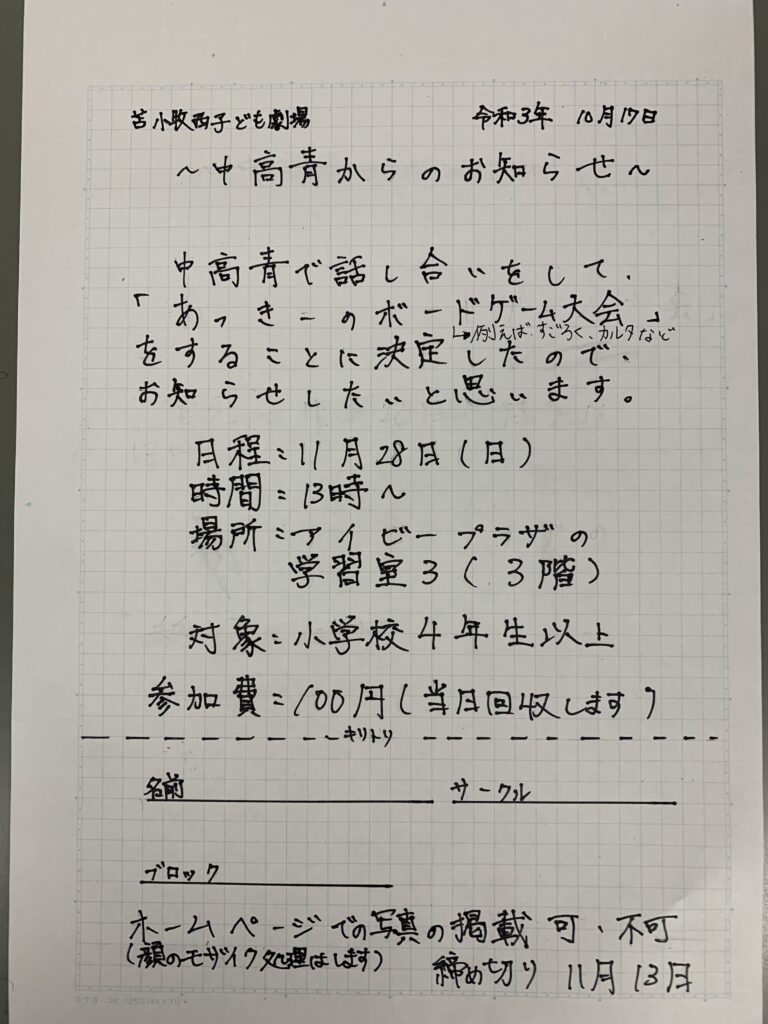 苫小牧西子ども劇場　令和3年 10月17日
～中高青からのお知らせ～
中高青で話し合いをして、
「あっきーのボードゲーム大会」
↳例えば…すごろく、カルタなど
をすることに決定したので、
お知らせしたいと思います。
日程：11月28日（日）
時間：13時～
場所：アイビープラザの
学習室3（3階）
対象：小学校4年生以上
参加費：100円（当日回収します）
キリトリ
名前　サークル
ブロック
ホームページでの写真の掲載 可・不可
（顔のモザイク処理はします）　締め切り 11月13日